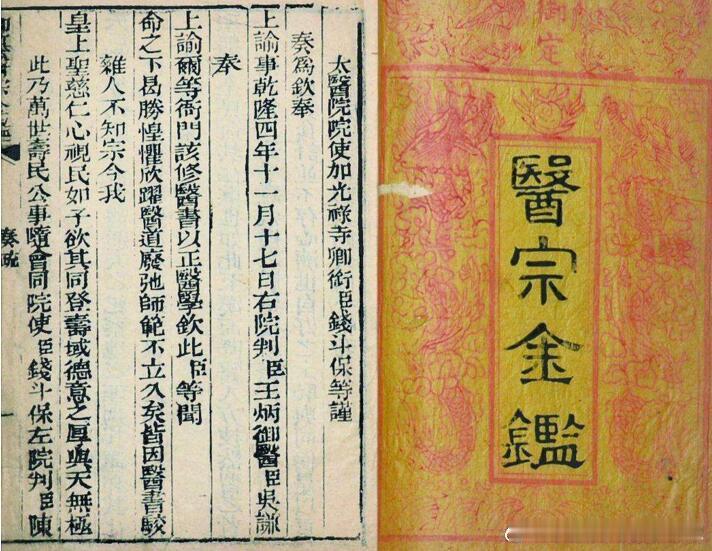 御定
醫宗金鑑
太醫院院使加光祿寺卿銜臣錢斗保等謹
奏爲欽奉
上諭事乾隆四年十一月十七日右院判臣王炳御醫臣吳謙
奉
上諭爾等衙門該修醫書以正醫學欽此臣等聞
命之下曷勝惶懼欣躍醫道廢弛師範不立久矣皆因醫書駮
雜人不知宗今我
皇上聖慈仁心視民如子欲其同登壽域德意之厚與天無極
此乃萬世壽民公事隨會同院使臣錢斗保左院判臣陳
奏疏